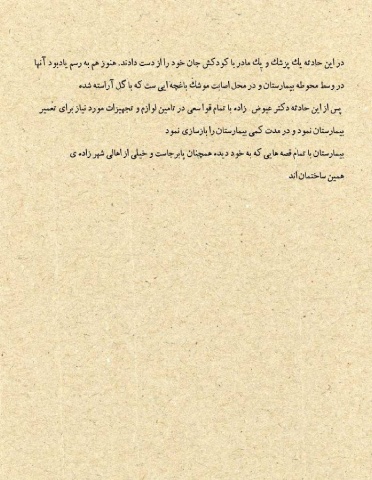 در این حادثه یك پزشك و یك مادر با کودکش جان خود را از دست دادند. هنوز هم به رسم یادبود آنها
در وسط محوطه بیمارستان و در محل اصابت موشك باغچه ایی ست که با گل آراسته شده
پس از این حادثه دکتر عیوض زاده با تمام قوا سعی در تامین لوازم و تجهیزات مورد نیاز برای تعمیر
بیمارستان نمود و در مدت کمی بیمارستان را بازسازی نمود
بیمارستان با تمام قصه هایی که به خود دیده همچنان پابرجاست و خیلی از اهالی شهر زاده ی
همین ساختمان اند